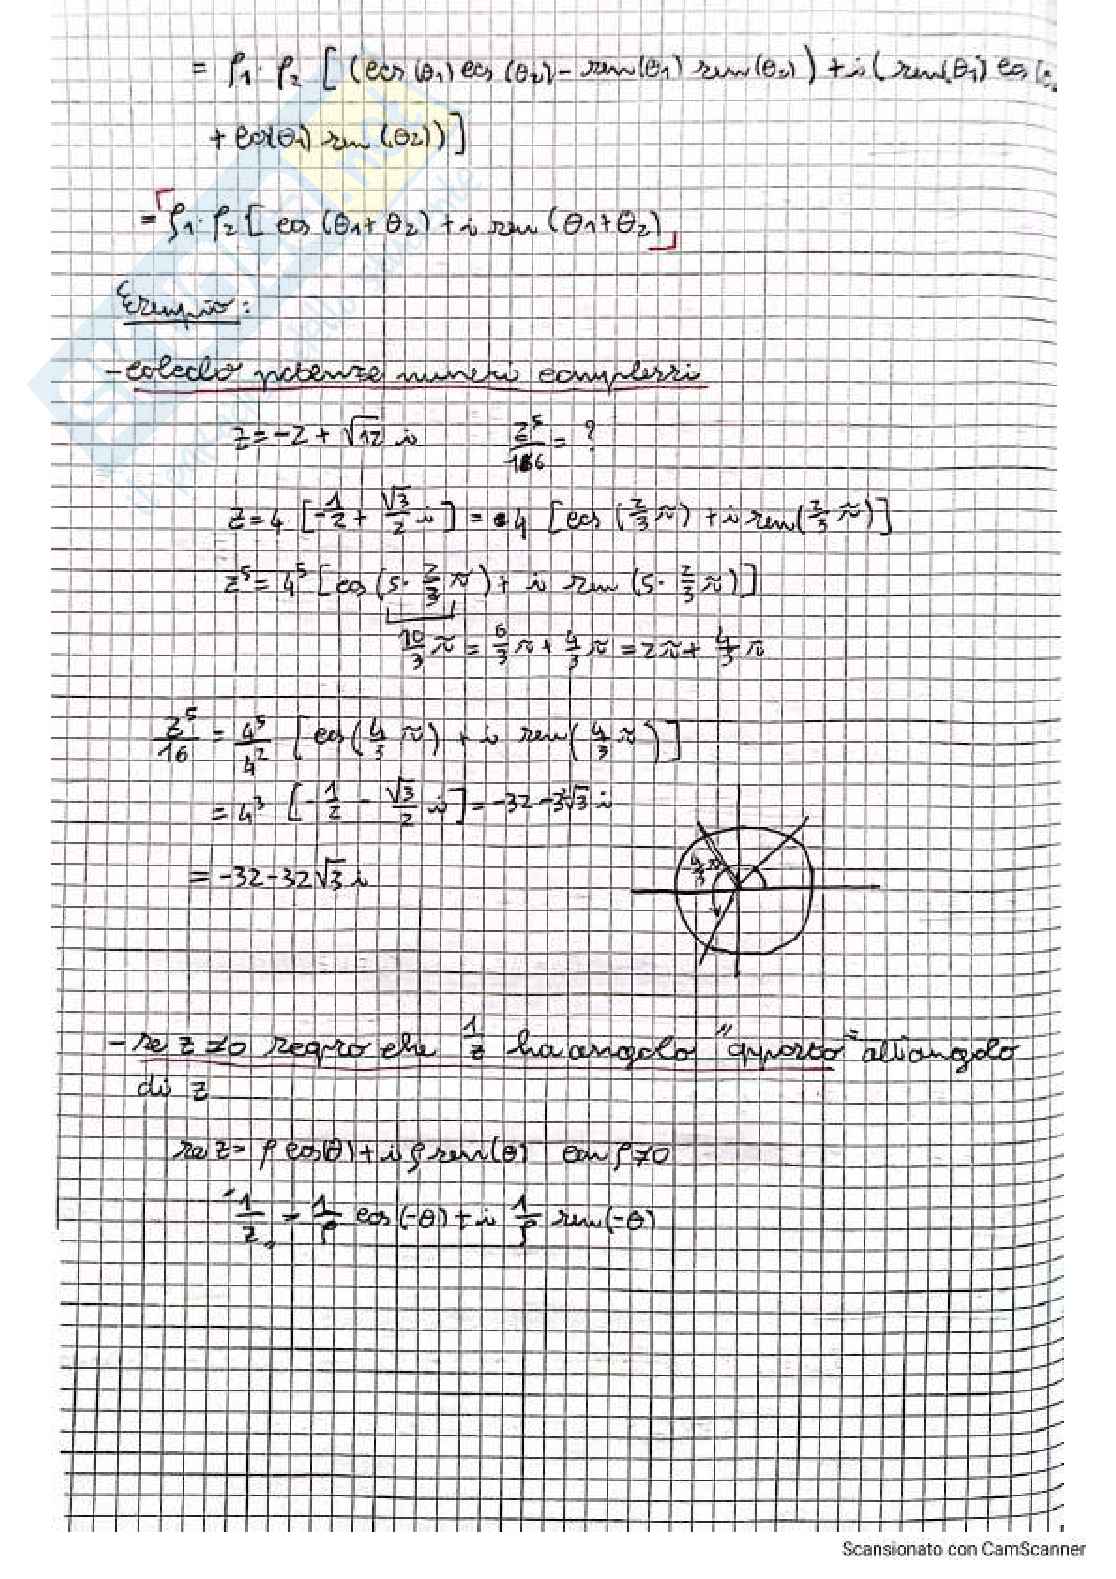 = ρ1 · ρ2 [ (cos(θ1) cos(θ2) - sen(θ1) sen(θ2)) + i ( sen(θ1) cos(θ2
+ cos(θ1) sen(θ2)) ]
= ρ1 · ρ2 [ cos (θ1 + θ2) + i sen (θ1 + θ2)
Esempio:
- calcolo potenze numeri complessi
z = -2 + √12 i z⁵/16 = ?
z = 4 [ -1/2 + √3/2 i ] = 4 [ cos (2/3 π) + i sen (2/3 π) ]
z⁵ = 4⁵ [ cos (5 · 2/3 π) + i sen (5 · 2/3 π) ]
10/3 π = 6/3 π + 4/3 π = 2π + 4/3 π
z⁵/16 = 4⁵/4² [ cos (4/3 π) + i sen (4/3 π) ]
= 4³ [ -1/2 - √3/2 i ] = -32 - 3√3 i
= -32 - 32√3 i
4/3 π
- se z ≠ 0 segno che 1/z ha angolo "opposto" all'angolo
di z
se z = ρ cos(θ) + i ρ sen(θ) con ρ ≠ 0
1/z = 1/ρ cos(-θ) + i 1/ρ sen(-θ)
Scansionato con CamScanner